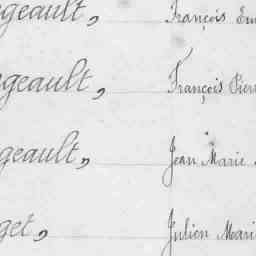 geault, François Em
geault, François Pier
geault, Jean Marie
get, Julien Mari